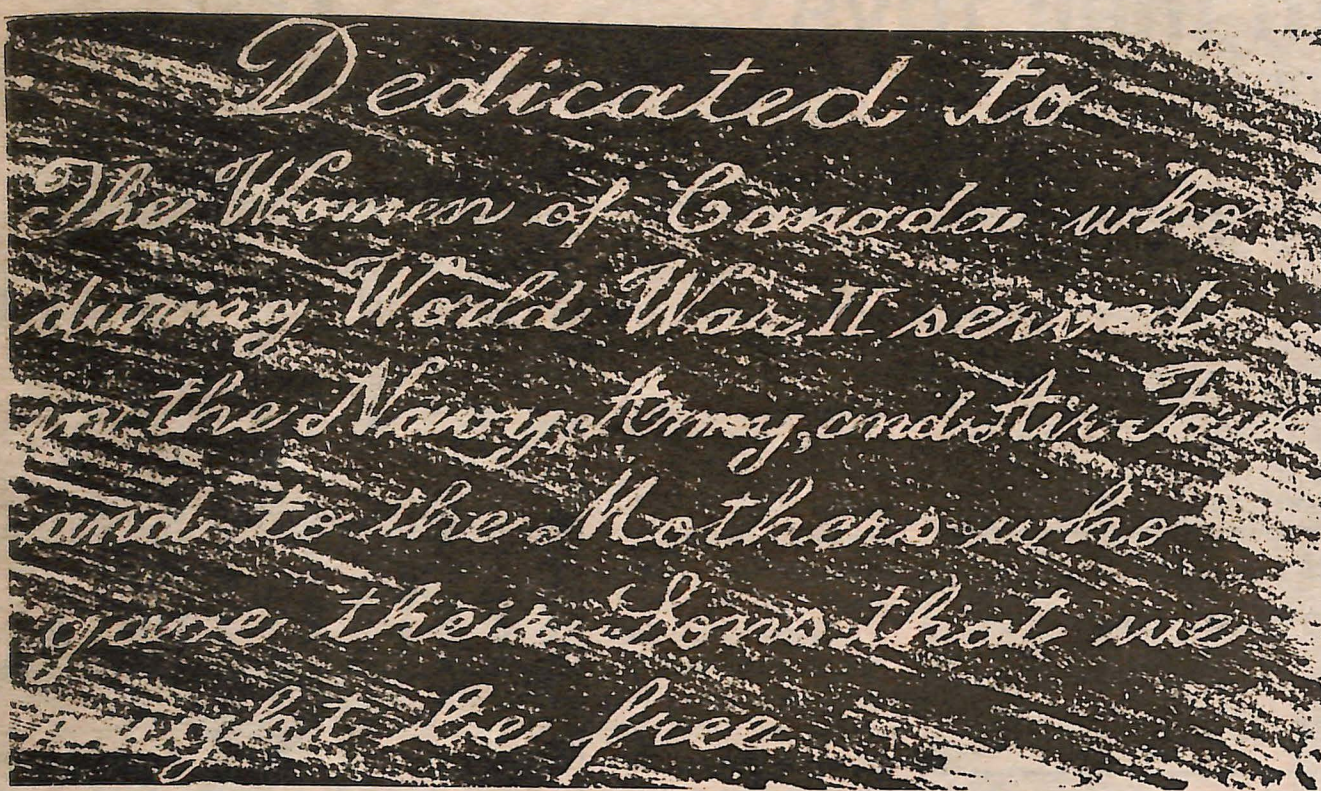 Dedicated to
The Women of Canada who
during World War II served
in the Navy, Army, and Air Force
and to the Mothers who
gave their Sons that we
might be free